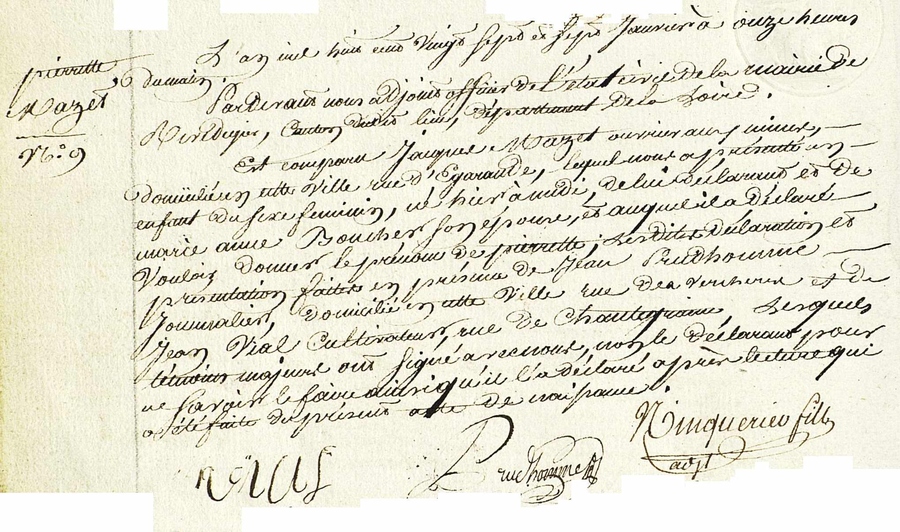 pierrette
Mazet
N.o 9
L'an mil huit cent Vingt sept et sept Janvier à onze heures
du matin
Par Devant nous adjoint officier de l'état civil de la mairie de
Rivedegier, Canton dudit lieu, département de la Loire.
Est comparu Jacques Mazet ouvrier aux mines,
domicilié en cette Ville rue d'Egarande, lequel nous a présenté un
enfant du sexe feminin, né hier à midi, de lui déclarant et de
marie anne Boucher son épouse, et auquel il a déclaré
Vouloir donner le prénom de pierrette; Lesdites déclaration et
présentation faites en présence de Jean Prudhomme
Journalier, domicilié en cette Ville rue de la vercherie et de
Jean Vial Cultivateur, rue de Chantegraine, Lesquels
témoins majeurs ont signé avec nous, non le déclarant pour
ne savoir le faire ainsi qu'il l'a déclaré après lecture qui
a été faite du présent acte de naissance.
Vial
Prudhomme
fils
adjt